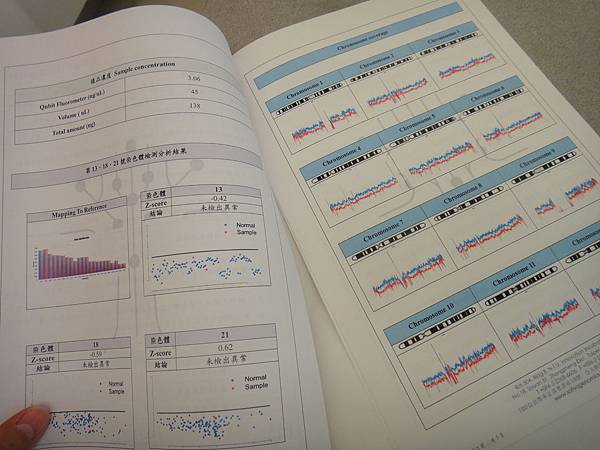 樣品濃度 Sample concentration
Qubit Fluorometer (ng/uL) 3.06
Volume ( uL) 45
Total amount (ng) 138
第 13、18、21 號染色體檢測分析結果
Mapping To Reference
染色體 13
Z-score -0.42
結論 未檢出異常
Normal
Sample
染色體 18
Z-score -0.59
結論 未檢出異常
Normal
Sample
染色體 21
Z-score 0.62
結論 未檢出異常
Normal
Sample
Chromosome coverage
Chromosome 1
Chromosome 2
Chromosome 3
Chromosome 4
Chromosome 5
Chromosome 6
Chromosome 7
Chromosome 8
Chromosome 9
Chromosome 10
Chromosome 11